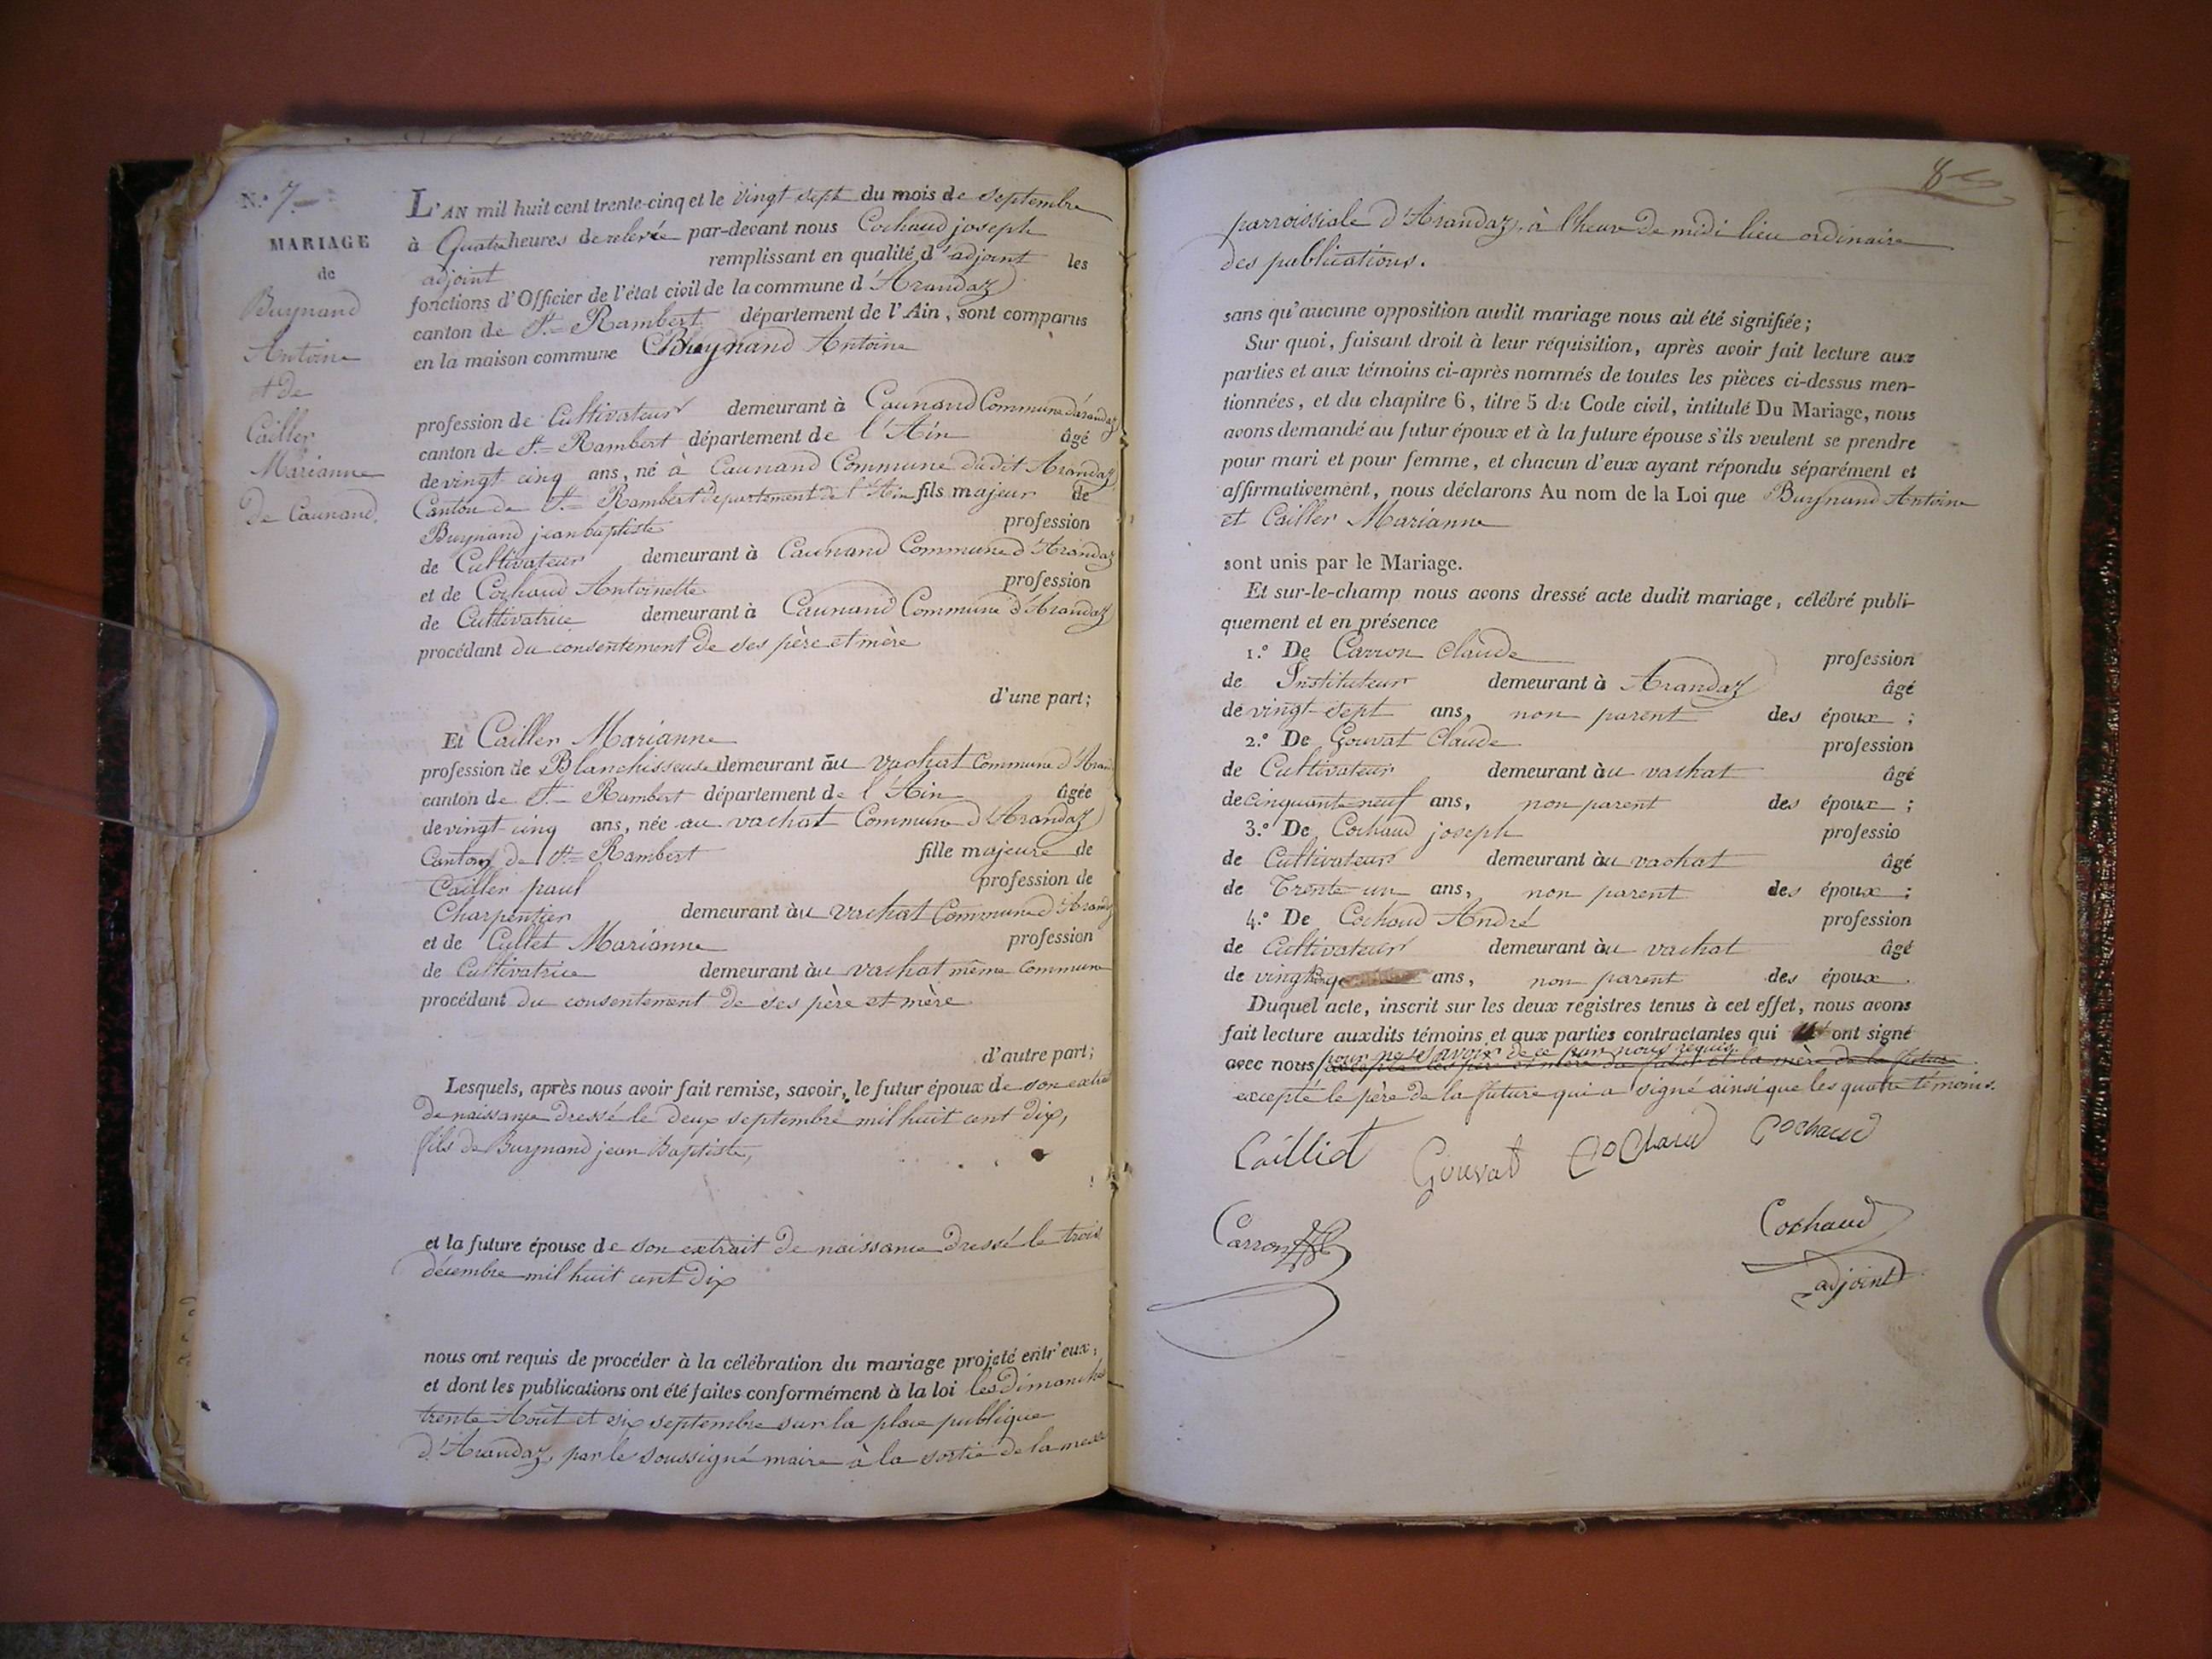 N.º 7
MARIAGE
de
Buynand
Antoine
et de
Cailler
Marianne
de Caunand.
L'AN mil huit cent trente-cinq et le vingt-sept du mois de septembre
à Quatre heures de relevée par-devant nous Cochaud joseph
adjoint remplissant en qualité d'adjoint les
fonctions d'Officier de l'état civil de la commune d'Arandaz
canton de St. Rambert département de l'Ain, sont comparus
en la maison commune Buynand Antoine
profession de Cultivateur demeurant à Caunand Commune d'arandaz
canton de St. Rambert département de l'Ain âgé
de vingt cinq ans, né à Caunand Commune dudit Arandaz
Canton de St. Rambert departement de l'Ain fils majeur de
Buynand jean baptiste profession
de Cultivateur demeurant à Caunand Commune d'Arandaz
et de Cochaud Antoinette profession
de Cultivatrice demeurant à Caunand Commune d'Arandaz
procédant du consentement de ses père et mère
d'une part;
Et Cailler Marianne
profession de Blanchisseuse demeurant au vachat Commune d'Arand
canton de St. Rambert département de l'Ain âgée
de vingt cinq ans, née au vachat Commune d'Arandaz
Canton de St. Rambert fille majeure de
Cailler paul profession de
Charpentier demeurant àu vachat Commune d'Arandaz
et de Cullet Marianne profession
de Cultivatrice demeurant àu vachat même commune
procédant du consentement de ses père et mère
d'autre part;
Lesquels, après nous avoir fait remise, savoir, le futur époux de son extrait
de naissance dressé le deux septembre mil huit cent dix,
fils de Buynand jean Baptiste,
et la future épouse de son extrait de naissance dressé le trois
décembre mil huit cent dix
nous ont requis de procéder à la célébration du mariage projeté entr'eux,
et dont les publications ont été faites conformément à la loi les dimanches
trente Août et six septembre sur la place publique
d'Arandaz, par le soussigné maire à la sortie de la messe
8
parroissiale d'Arandaz, à l'heure de midi lieu ordinaire
des publications.
sans qu'aucune opposition audit mariage nous ait été signifiée;
Sur quoi, faisant droit à leur réquisition, après avoir fait lecture aux
parties et aux témoins ci-après nommés de toutes les pièces ci-dessus men-
tionnées, et du chapitre 6, titre 5 du Code civil, intitulé Du Mariage, nous
avons demandé au futur époux et à la future épouse s'ils veulent se prendre
pour mari et pour femme, et chacun d'eux ayant répondu séparément et
affirmativement, nous déclarons Au nom de la Loi que Buynand Antoine
et Cailler Marianne
sont unis par le Mariage.
Et sur-le-champ nous avons dressé acte dudit mariage, célébré publi-
quement et en présence
1.º De Carron Claude profession
de Instituteur demeurant à Arandaz âgé
de vingt sept ans, non parent des époux;
2.º De Gouvat Claude profession
de Cultivateur demeurant àu vachat âgé
de cinquante neuf ans, non parent des époux;
3.º De Cochaud joseph professio
de Cultivateur demeurant àu vachat âgé
de Trente un ans, non parent des époux;
4.º De Cochaud André profession
de Cultivateur demeurant àu vachat âgé
de vingt ans, non parent des époux.
Duquel acte, inscrit sur les deux registres tenus à cet effet, nous avons
fait lecture auxdits témoins et aux parties contractantes qui ont signé
pour ne le savoir de ce par nous requis
avec nous et la mère de la future
excepté le père de la future qui a signé ainsi que les quatre témoins.
Cailliot Gouvat Cochaud Cochaud
Carron Cochaud
adjoint